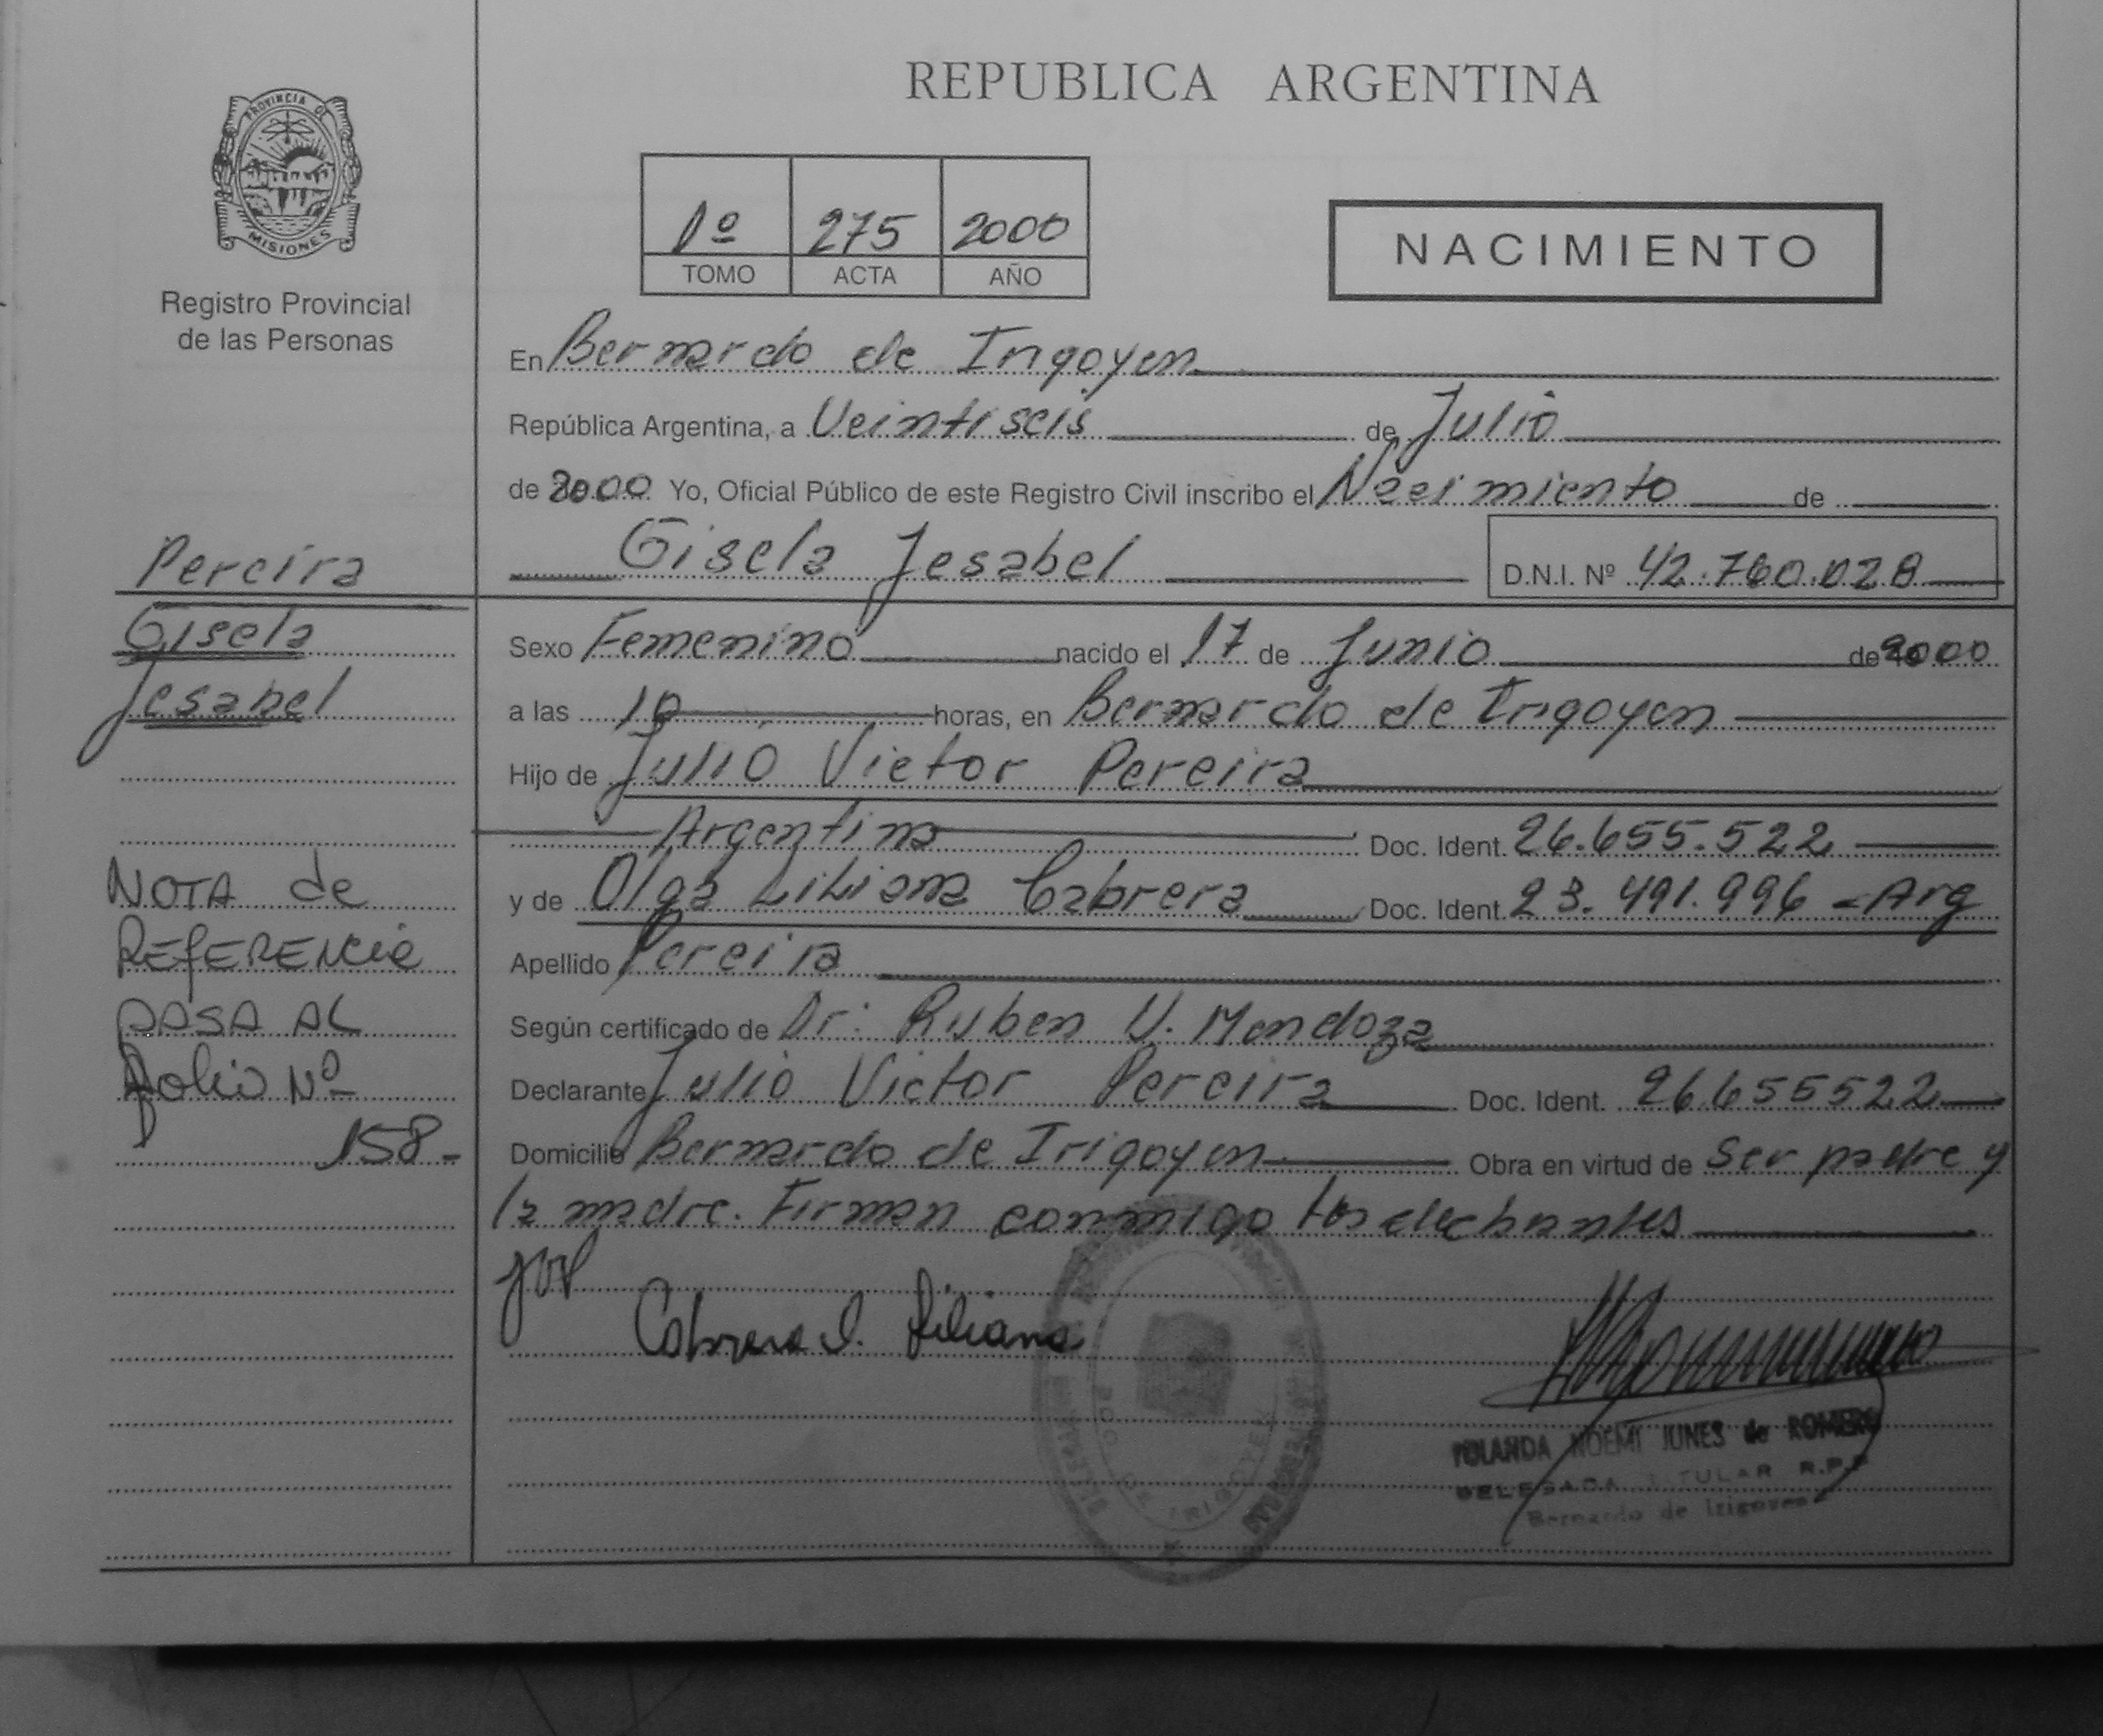 REPUBLICA ARGENTINA
PROVINCIA DE
MISIONES
Registro Provincial
de las Personas
1º 275 2000
TOMO ACTA AÑO
NACIMIENTO
En Bernardo de Irigoyen
República Argentina, a Veintiseis de Julio
de 2000 Yo, Oficial Público de este Registro Civil inscribo el Nacimiento de
Gisela Jesabel D.N.I. Nº 42.760.028
Pereira
Gisela
Jesabel
Sexo Femenino nacido el 17 de Junio de 2000
a las 10 horas, en Bernardo de Irigoyen
Hijo de Julio Victor Pereira
Argentino Doc. Ident. 26.655.522
y de Olga Liliana Cabrera Doc. Ident. 23.491.996 - Arg
Apellido Pereira
Según certificado de Dr: Ruben V. Mendoza
Declarante Julio Victor Pereira Doc. Ident. 26655522
Domicilio Bernardo de Irigoyen Obra en virtud de Ser padre y
la madre. Firman conmigo los
NOTA de
REFERENCIA
PASA AL
folio Nº
158-
Cabrera O. Liliana
YOLANDA NOEMI JUNES de ROMERO
DELEGADA TITULAR R.P.P
Bernardo de Irigoyen
BDO. DE IRIGOYEN